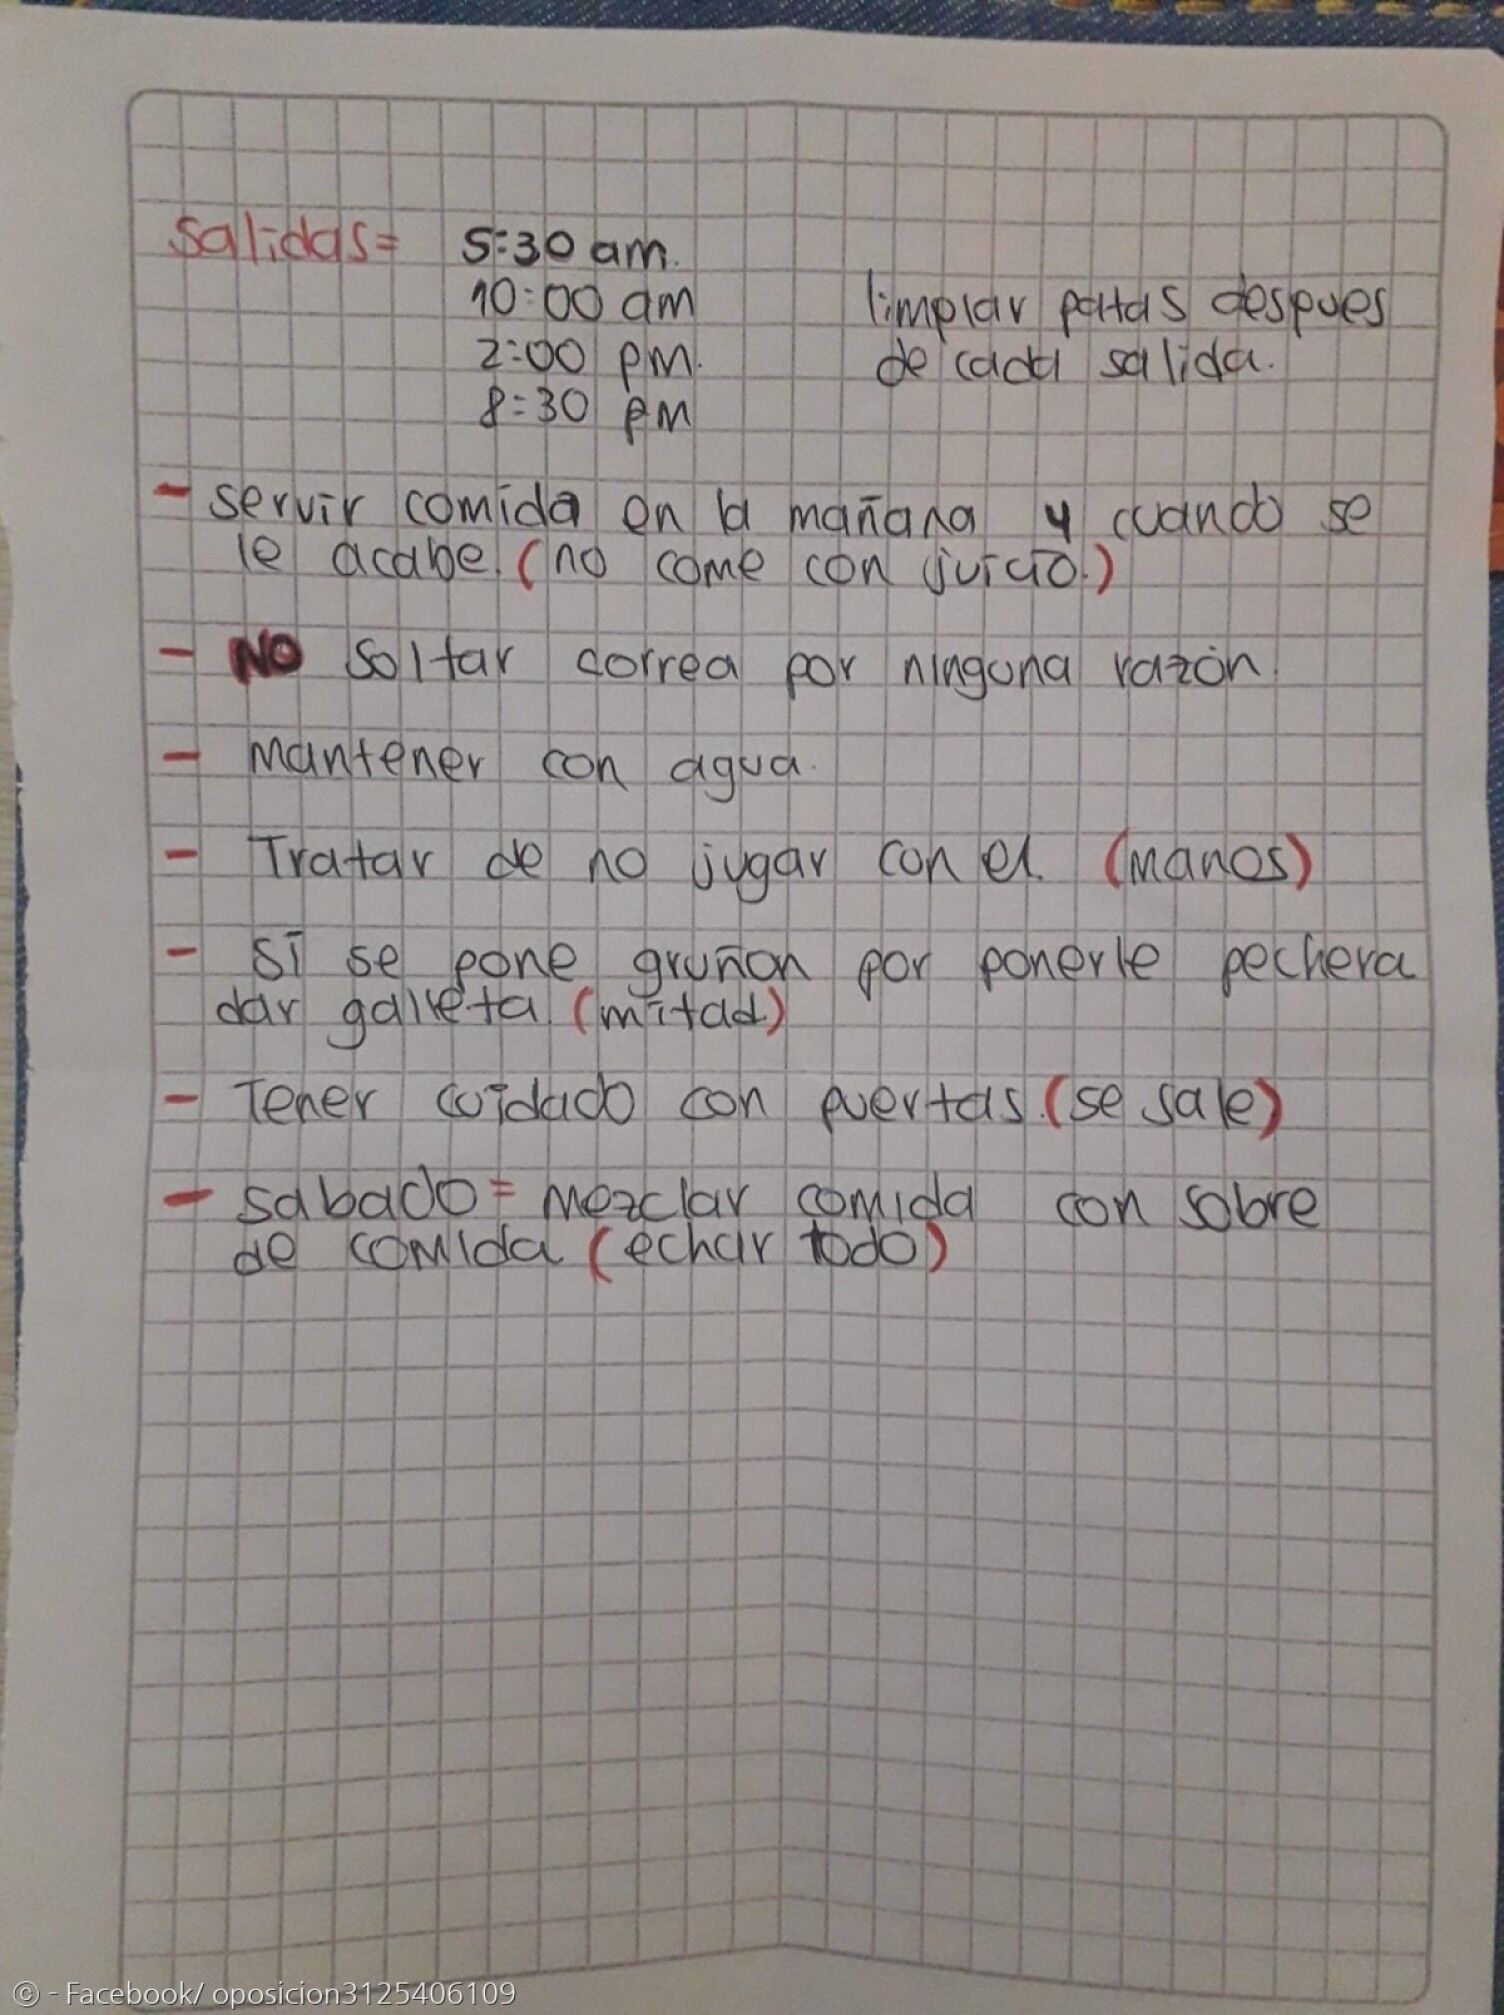 Salidas= 5:30 am.
10:00 am
2:00 pm.
8:30 pm
limpiar patas despues
de cada salida.
- servir comida en la mañana y cuando se
le acabe. (no come con juicio.)
- NO soltar correa por ninguna razón.
- Mantener con agua.
- Tratar de no jugar con el. (manos)
- Si se pone gruñon por ponerle pechera
dar galleta (mitad)
- Tener cuidado con puertas. (se sale)
- sabado = mezclar comida con sobre
de comida (echar todo)
© - Facebook/ oposicion3125406109